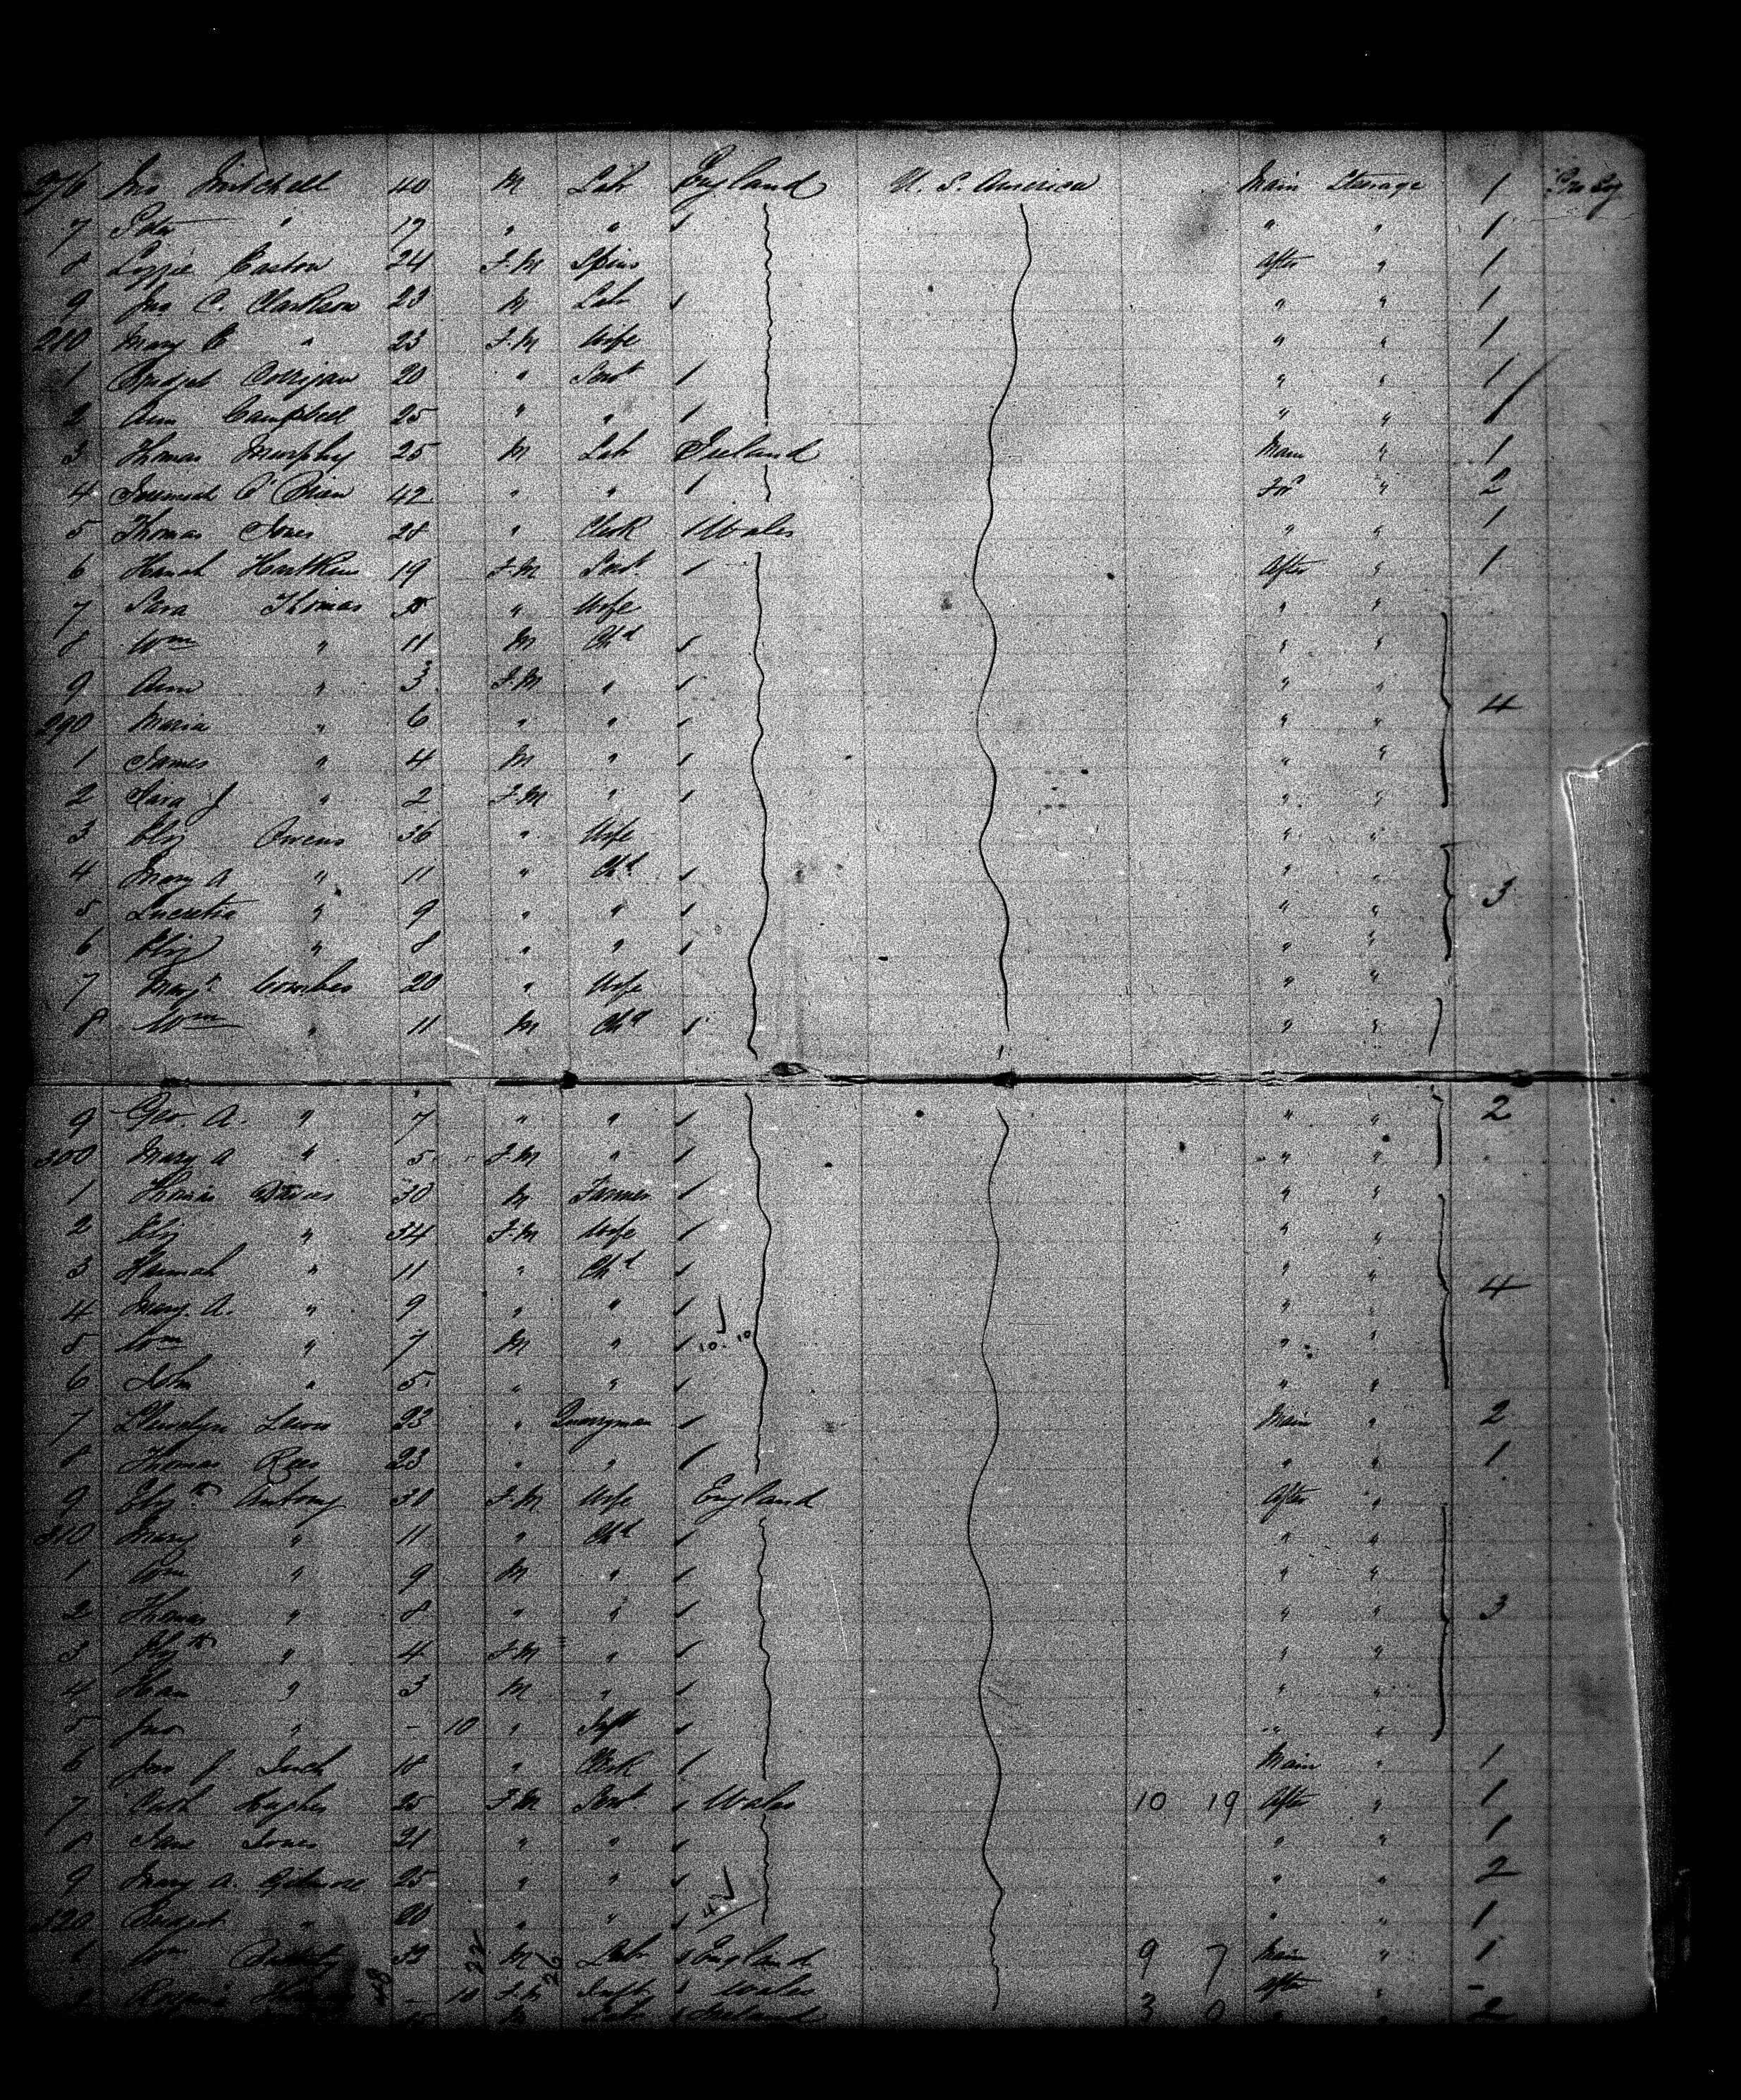 276 Jno Mitchell 40 M Lab England U. S. America Main Steerage 1
7 Peter " 19 " " 1 " " 1
8 Lizzie Easton 24 F.M Spins After " 1
9 Jno C. Clarkson 23 M Lab 1 " " 1
280 Mary E " 23 F.M Wife " " 1
1 Bridget Corrigan 20 " Servt 1 " " 1
2 Ann Campbell 25 " " 1 " " 1
3 Thomas Murphy 25 M Lab Ireland Main " 1
4 Jeremiah O'Brien 42 " " 1 For " 2
5 Thomas Jones 28 " Clerk 1 Wales " " 1
6 Hanah 19 F.M Servt 1 After " 1
7 Sara Thomas " Wife " "
8 Wm " 11 M Chd 1 " "
9 Ann " 3 F.M " 1 " "
290 Maria " 6 " " 1 " " 4
1 James " 4 M " 1 " "
2 Sara J " 2 F.M " 1 " "
3 Eliz Owens 36 " Wife " "
4 Mary A " 11 " Chd 1 " "
5 Lucretia " 9 " " 1 " " 3
6 Eliz " 8 " " 1 " "
7 Margt Combes 20 " Wife " "
8 Wm " 11 M Chd 1 " "
9 Geo. A. " 7 " " 1 " " 2
300 Mary A " 5 F.M " 1 " "
1 Thomas Davies 30 M Farmer 1 " "
2 Eliz " 34 F.M Wife 1 " "
3 Hannah " 11 " Chd 1 " "
4 Mary. A. " 9 " " 1 " " 4
5 Wm " 7 M " 1 10. 10 " "
6 John " 5 " " 1 " "
7 Llewelyn Lewis 23 " Quarryman 1 Main " 2
8 Thomas Rees 23 " " 1 " " 1
9 Elizth Antony 30 F.M Wife England After "
310 Mary " 11 " Chd 1 " "
1 Wm " 9 M " 1 " "
2 Thomas " 8 " " 1 " " 3
3 Elizth " 4 F.M " 1 " "
4 " 3 M " 1 " "
5 Jno " - 10 " Inft 1 " "
6 Jno J. 18 " Clerk 1 Main " 1
7 Cath Hughes 25 F.M Servt 1 Wales 10 19 After " 1
8 Jane Jones 21 " " 1 " " 1
9 Mary A. Gilmore 25 " " 1 " " 2
320 Bridget " 20 " " 1 " " 1
1 Wm 33 M Lab 1 England 9 7 Main " 1
- 10 F.M Inft 1 Wales After " -
M Lab 1 Ireland 3 0 " " 2